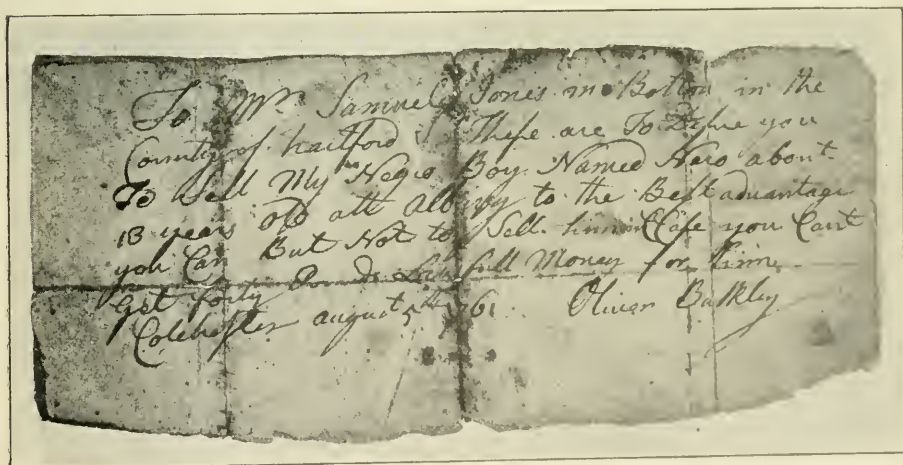 To Mr. Samuel Jones in Bolton in the
County of hartford These are To Desire you
To Sell My Negro Boy Named Nero about
13 years old att Albany to the Best advantage
you Can But Not to Sell him in Case you Cant
get forty Pounds Lawfull Money for him
Colchester august 5th 1761 Oliver Bulkley